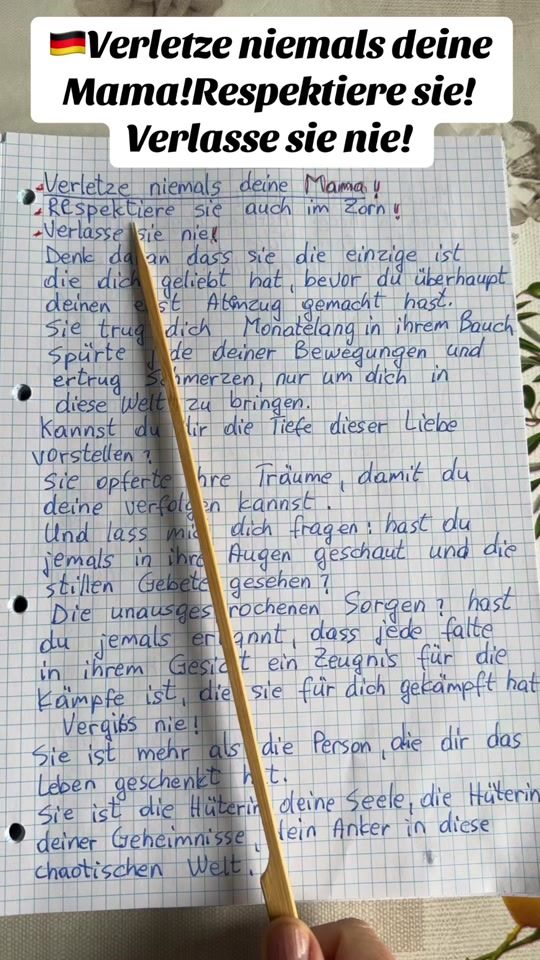 🇩🇪Verletze niemals deine
Mama!Respektiere sie!
Verlasse sie nie!
Verletze niemals deine Mama!
Respektiere sie auch im Zorn!
Verlasse sie nie!
Denk daran dass sie die einzige ist
die dich geliebt hat, bevor du überhaupt
deinen Atemzug gemacht hast.
Sie trug dich Monatelang in ihrem Bauch
Spürte jede deiner Bewegungen und
ertrug Schmerzen, nur um dich in
diese Welt zu bringen.
Kannst du dir die Tiefe dieser Liebe
vorstellen?
Sie opferte ihre Träume, damit du
deine verfolgen kannst.
Und lass mich dich fragen: hast du
jemals in ihre Augen geschaut und die
stillen Gebete gesehen?
Die unausgesprochenen Sorgen? hast
du jemals erkannt, dass jede falte
in ihrem Gesicht ein Zeugnis für die
Kämpfe ist, die sie für dich gekämpft hat
Vergibs nie!
Sie ist mehr als die Person, die dir das
Leben geschenkt hat.
Sie ist die Hüterin deine Seele, die Hüterin
deiner Geheimnisse, dein Anker in diese
chaotischen Welt.